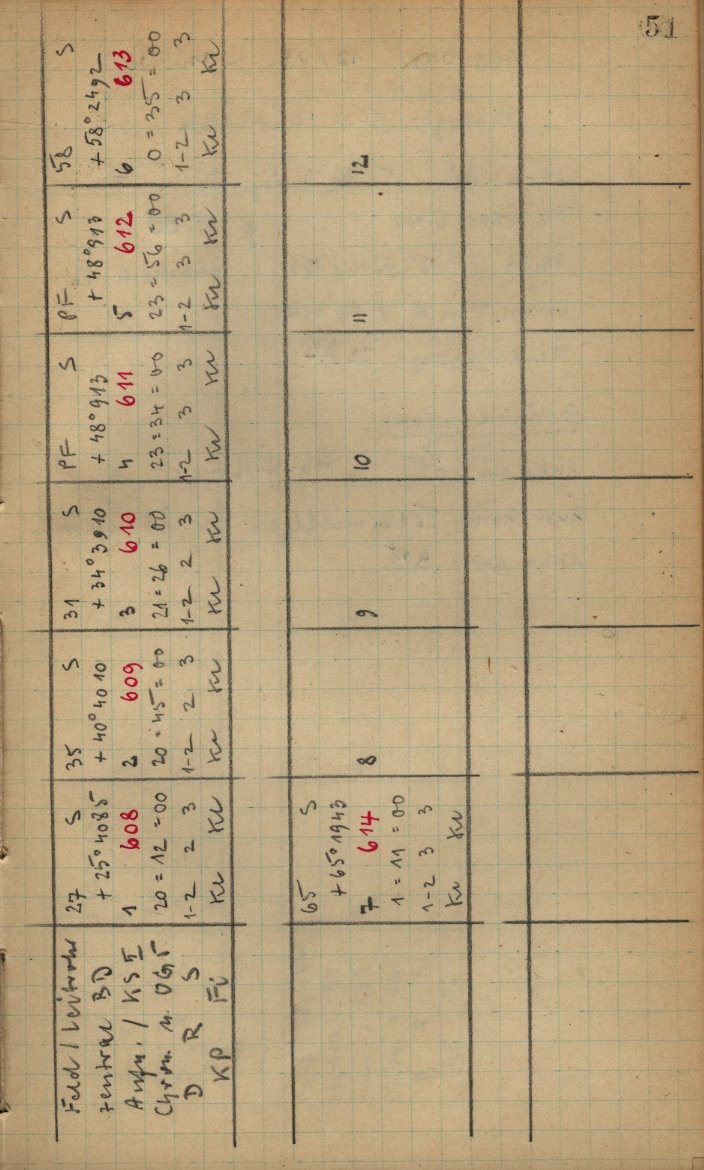 51
Feld / Leitrohr 27 S 35 S 31 S PF S PF S 58 S
zentral BD + 25°4085 + 40°4010 + 34°3910 + 48°913 + 48°913 + 58°2492
Aufn. / KS I 1 608 2 609 3 610 4 611 5 612 6 613
Chron. n. OG5 20=12=00 20=45=00 21=26=00 23=34=00 23=56=00 0=35=00
D R S 1-2 2 3 1-2 2 3 1-2 2 3 1-2 3 3 1-2 3 3 1-2 3 3
KP Fi Kr Kr Kr Kr Kr Kr Kr Kr Kr Kr Kr Kr
65 S
+ 65°1943
7 614 8 9 10 11 12
1=11=00
1-2 3 3
Kr Kr